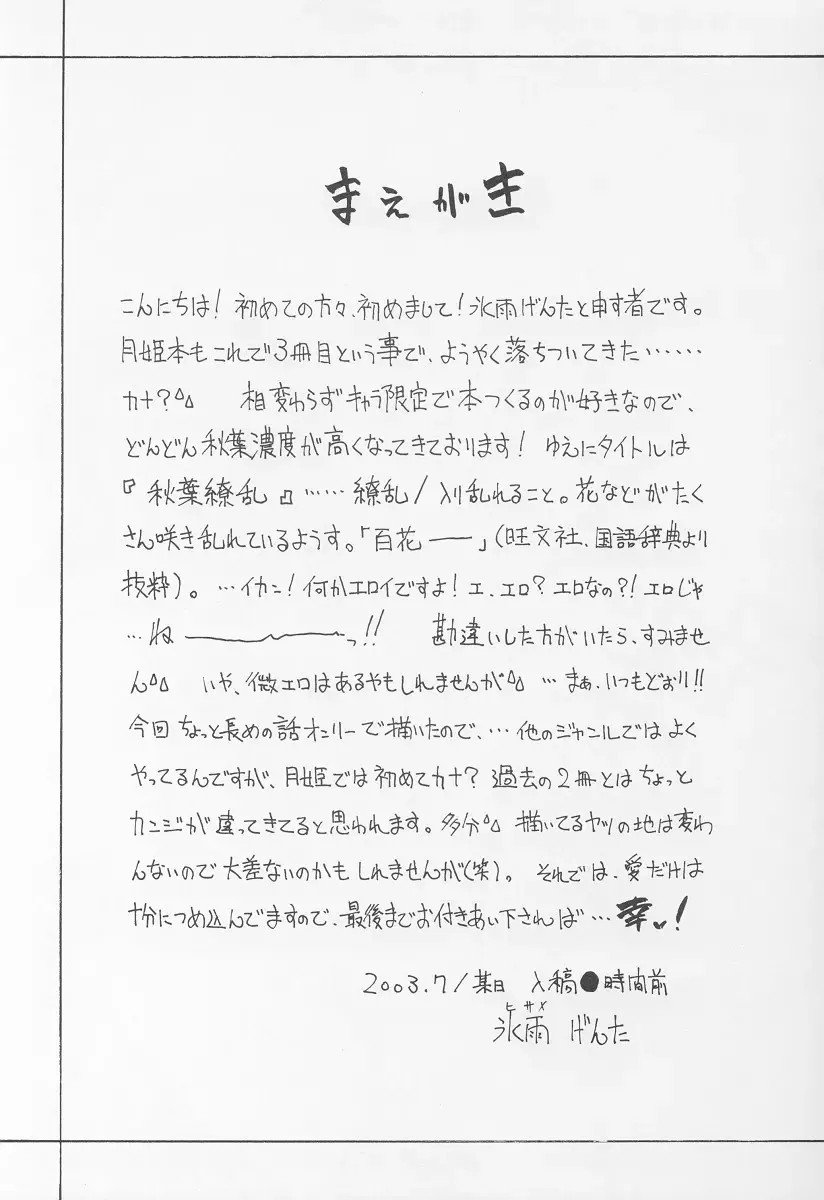 まえがき
こんにちは！初めての方々、初めまして！氷雨げんたと申す者です。
月姫本もこれで3冊目という事で、ようやく落ちついてきた……
カナ？^^ 相変わらずキャラ限定で本つくるのが好きなので、
どんどん秋葉濃度が高くなってきております！ゆえにタイトルは
『秋葉繚乱』……繚乱/入り乱れること。花などがたく
さん咲き乱れているようす。「百花――」（旺文社、国語辞典より
抜粋）。…イカン！何かエロイですよ！エ、エロ？エロなの？！エロじゃ
…ね――――っ!! 勘違いした方がいたら、すみませ
ん^^ いや、微エロはあるやもしれませんが^^ …まぁ、いつもどおり!!
今回ちょっと長めの話オンリーで描いたので、…他のジャンルではよく
やってるんですが、月姫では初めてカナ？過去の2冊とはちょっと
カンジが違ってきてると思われます。多分^^ 描いてるヤツの地は変わ
んないので大差ないのかもしれませんが（笑）。それでは、愛だけは
十分につめ込んでますので、最後までお付きあい下されば…幸♥！
2003.7/某日 入稿●時間前
ヒサメ
氷雨 げんた